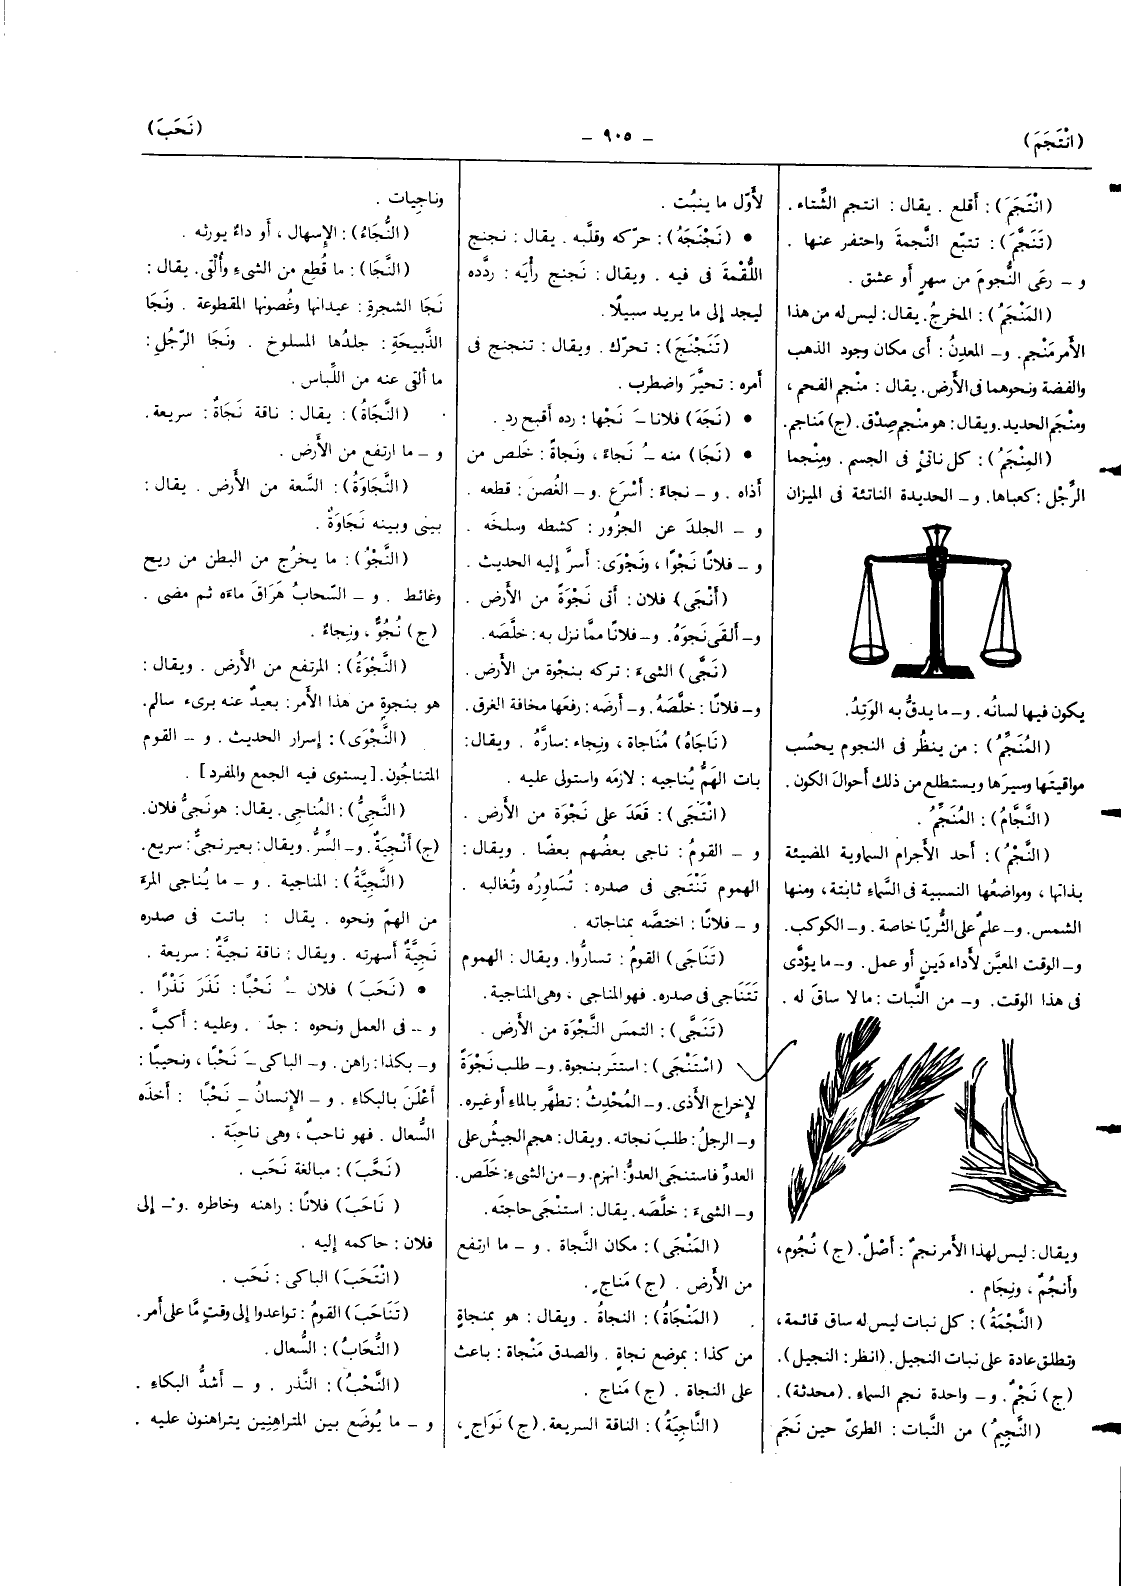 (انْتَجَمَ)
— ٩٠٥ —
(نَحَبَ)
(انْتَجَمَ): أَقلع . يقال : انتجم الشِّتاء .
(تَنَجَّمَ): تتبّع النَّجمةَ واحتفر عنها .
و – رعَى النُّجومَ من سهرٍ أو عشق .
(المَنْجَمُ): المخرجُ. يقال: ليس له من هذا
الأمر مَنْجم. و– المعدِنُ : أى مكان وجود الذهب
والفضة ونحوهما فى الأرض. يقال : منْجم الفحم ،
ومنْجَم الحديد. ويقال: هو منْجم صِدْق. (ج) مَناجم.
(المِنْجَمُ): كل ناتئٍ فى الجسم . ومِنْجما
الرِّجْل : كعباها. و– الحديدة الناتئة فى الميزان
يكون فيها لسانُه. و– ما يدقُّ به الوَتِدُ.
(المُنَجِّمُ): من ينظُر فى النجوم يحسُب
مواقيتَها وسيرَها ويستطلع من ذلك أحوالَ الكون.
(النَّجَّامُ): المُنَجِّمُ .
(النَّجْمُ): أحد الأجرام السماوية المضيئة
بذاتها ، ومواضعُها النسبية فى السَّماء ثابتة، ومنها
الشمس. و– علمٌ على الثُّريّا خاصة. و– الكوكب.
و– الوقت المعيَّن لأداء دَينٍ أو عمل. و– ما يؤدَّى
فى هذا الوقت. و– من النَّبات : ما لا ساقَ له .
ويقال: ليس لهذا الأمر نجمٌ : أصْلٌ. (ج) نُجُوم،
وأَنجُمٌ ، ونِجَام .
(النَّجْمَةُ): كل نبات ليس له ساق قائمة،
وتطلق عادة على نبات النجيل. (انظر: النجيل).
(ج) نَجْمٌ. و– واحدة نجم السماء. (محدثة).
(النَّجِيمُ) من النَّبات : الطرىّ حين نَجَمَ
لأَوّل ما ينبُت .
• (نَجْنَجَهُ): حرّكه وقلَّبه . يقال: نجنج
اللُّقمَةَ فى فيه . ويقال: نَجنج رأيَه : ردَّده
ليجد إلى ما يريد سبيلًا.
(تَنَجْنَجَ): تحرّك . ويقال : تنجنج فى
أمره : تحيَّرَ واضطرب .
• (نَجَهَ) فلانا –َ نَجْها: رده أقبح رد .
• (نَجَا) منه –ُ نَجاءً ، ونَجاةً: خلَص من
أذاه . و– نجاءً : أسْرَع .و– الغُصنَ : قطعه .
و – الجلدَ عن الجزُور : كشطه وسلخَه .
و – فلانًا نَجْوًا ، ونَجْوَى: أسرَّ إليه الحديث .
(أَنْجَى) فلان : أتى نَجْوَةً من الأرض .
و– ألقَى نَجوَهُ. و– فلانًا ممَّا نزل به : خلَّصَه.
(نَجَّى) الشىءَ : تركه بنجْوة من الأرض .
و– فلانًا : خلَّصَهُ. و– أرضَه: رفعَها مخافة الغرق.
(نَاجَاهُ) مُنَاجاة ، ونِجاء :سارَّهُ . ويقال:
بات الهَمُّ يُناجيه : لازمَه واستولى عليه .
(انْتَجَى): قَعَدَ على نَجْوَة من الأرض .
و – القومُ : ناجى بعضُهم بعضًا . ويقال:
الهموم تَنْتَجى فى صدره : تُسَاوِرُه وتُغالبه .
و – فلانًا : اختصَّه بمناجاته .
(تَنَاجَى) القومُ : تسارُّوا. ويقال: الهموم
تَتَنَاجى فى صدره. فهو المناجى ، وهى المناجية.
(تَنَجَّى): التمسَ النَّجْوَة من الأرض .
(اسْتَنْجَى): استتَر بنجوة. و– طلب نَجْوَةً
لإخراج الأذى. و– المُحْدِثُ : تطهَّر بالماء أو غيره.
و– الرجلُ: طلبَ نجاته. ويقال: هجم الجيشُ على
العدوِّ فاستنجَى العدوُّ: انهزم. و– من الشىءِ: خَلَص.
و– الشىءَ : خلَّصَه. يقال: استنْجَى حاجتَه.
(المَنْجَى): مكان النَّجاة . و – ما ارتفع
من الأرض . (ج) مَناجٍ .
(المَنْجَاةُ): النجاةُ . ويقال: هو بمنجاةٍ
من كذا : بموضع نجاةٍ . والصدق مَنْجاة : باعث
على النجاة . (ج) مَناج .
(النَّاجِيَةُ): الناقة السريعة. (ج) نَوَاجٍ ،
وناجيات .
(النُّجَاءُ): الإسهال ، أو داءٌ يورثه .
(النَّجَا): ما قُطع من الشىءِ وأُلْقى. يقال:
نَجَا الشجرةِ: عيدانها وغُصونها المقطوعة . ونَجَا
الذَّبيحَةِ: جلدُها المسلوخ . ونَجَا الرّجُلِ:
ما ألقى عنه من اللِّباس .
(النَّجَاةُ): يقال: ناقة نَجَاةٌ: سريعة.
و – ما ارتفع من الأَرض .
(النَّجَاوَةُ): السَّعة من الأرض . يقال:
بينى وبينه نَجَاوَةٌ .
(النَّجْوُ): ما يخرُج من البطن من ريح
وغائط . و – السّحابُ هَرَاقَ ماءَه ثم مضى .
(ج) نُجُوٌّ ، ونِجاءٌ .
(النَّجْوَةُ): المرتفع من الأرض . ويقال:
هو بنجوةٍ من هذا الأمر: بعيدٌ عنه برىء سالم.
(النَّجْوَى): إسرار الحديث . و – القوم
المتناجُون. [يستوى فيه الجمع والمفرد] .
(النَّجِىُّ): المُناجِى. يقال: هو نَجىُّ فلان.
(ج) أَنْجِيَةٌ. و– السِّرُّ. ويقال: بعير نجىٌّ : سريع.
(النَّجِيَّةُ): المناجية . و – ما يُناجى المرءَ
من الهمّ ونحوه . يقال : باتت فى صدره
نَجِيَّةٌ أسهرته . ويقال: ناقة نجيَّةٌ : سريعة .
• (نَحَبَ) فلان –ُ نَحْبًا: نَذَرَ نَذْرًا .
و – فى العمل ونحوه : جدّ . وعليه : أكبَّ .
و– بكذا: راهن. و– الباكى –َ نَحْبًا ، ونحيبًا:
أعْلَنَ بالبكاء . و – الإنسانُ –َ نَحْبًا : أخذَه
السُّعال . فهو ناحبٌ ، وهى ناحِبَة .
(نَحَّبَ): مبالغة نَحَب .
(نَاحَبَ) فلانًا : راهنه وخاطره .و– إلى
فلان : حاكمه إليه .
(انْتَحَبَ) الباكى : نَحَب .
(تَنَاحَبَ) القومُ : تواعدوا إلى وقتٍ مَّا على أمر.
(النُّحَابُ): السُّعال.
(النَّحْبُ): النَّذر . و – أشدُّ البكاء .
و – ما يُوضَع بين المتراهِنِين يتراهنون عليه .